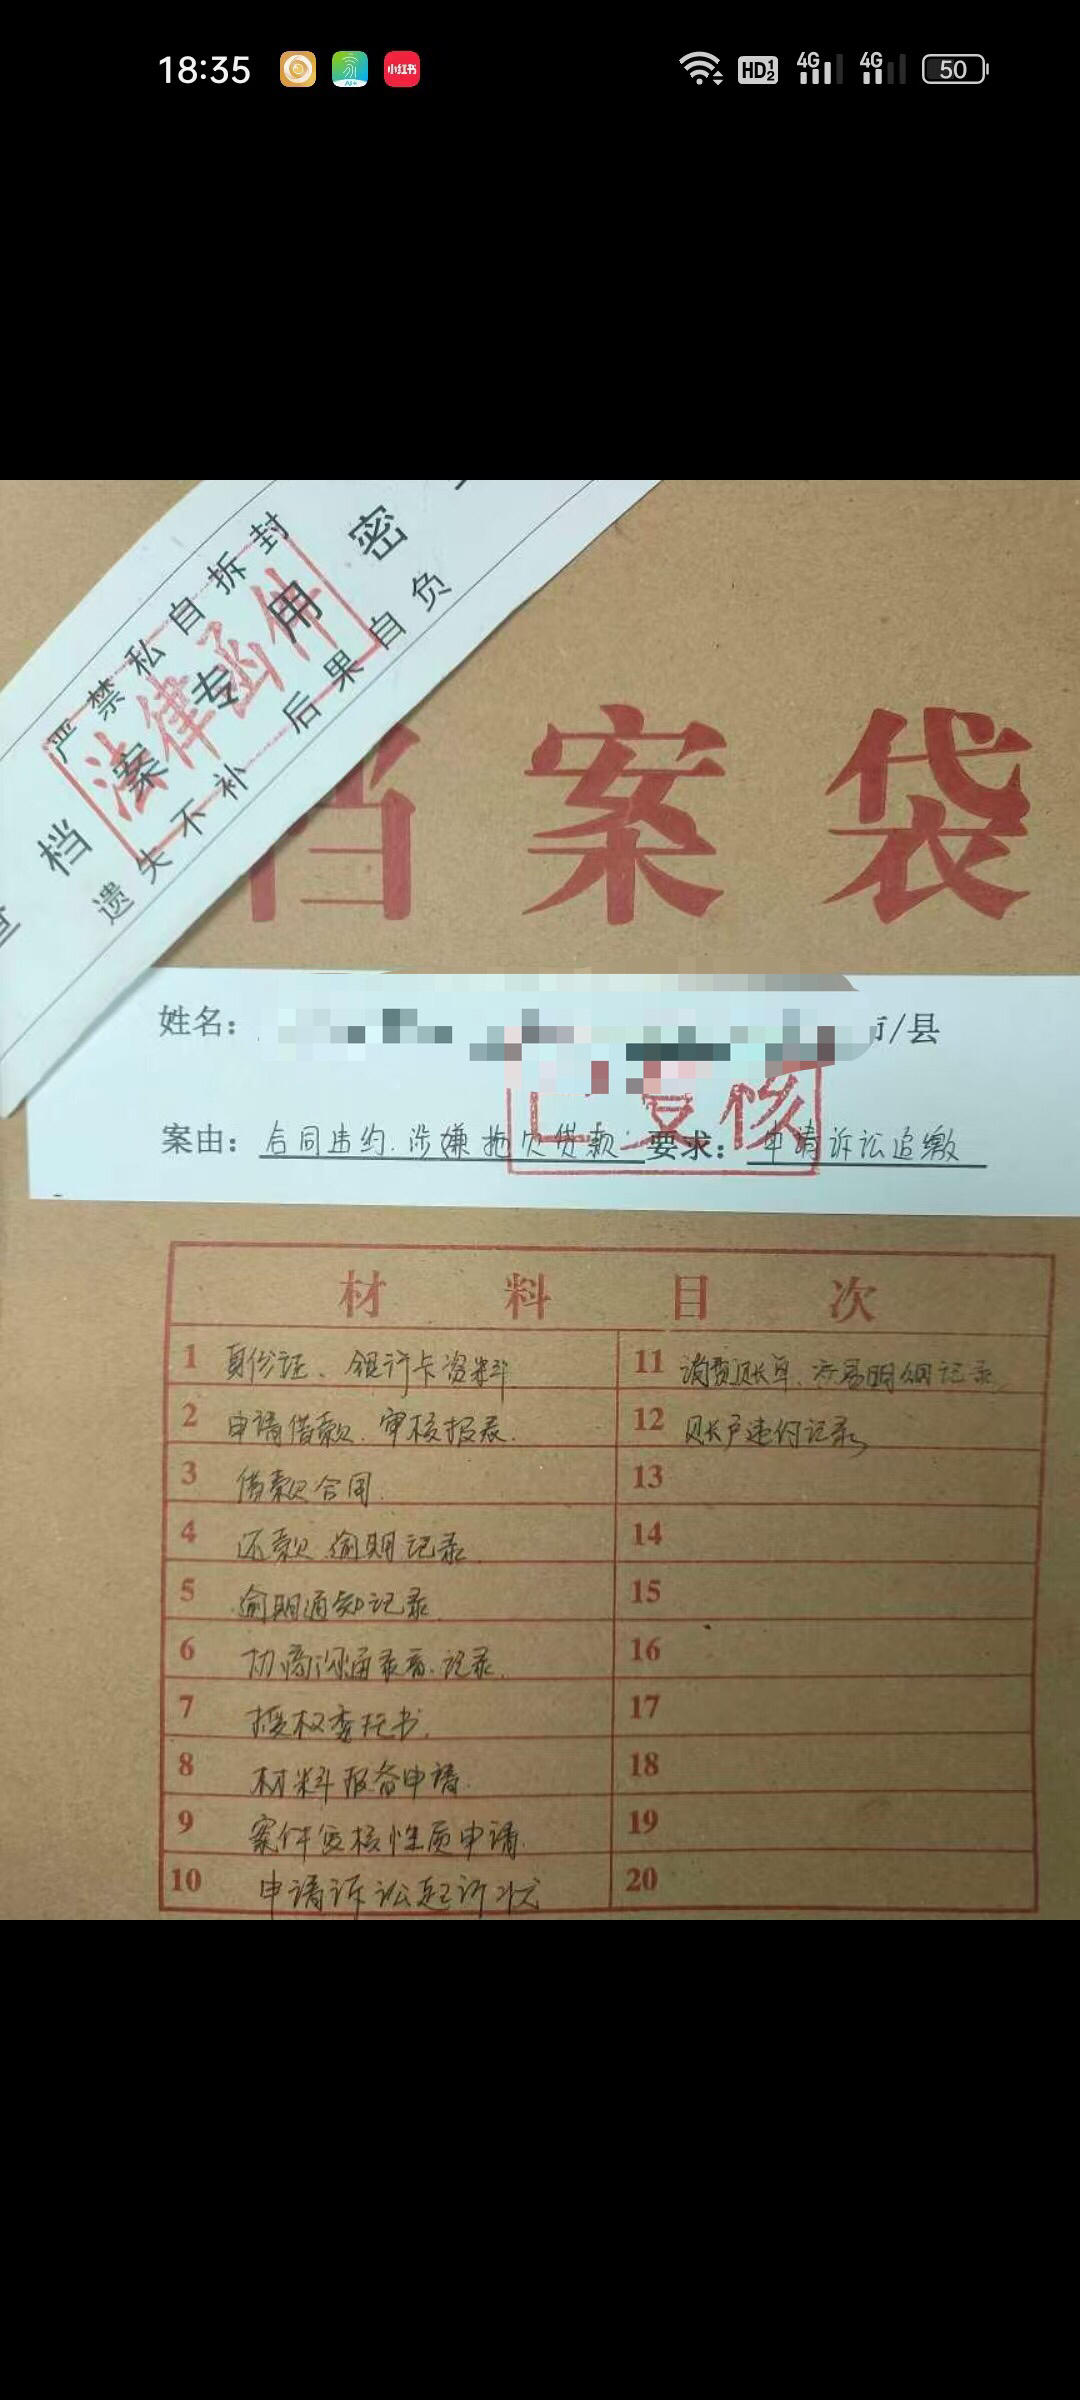 18:35
小红书
HD 1 2
4G
4G
50
严禁私自拆封
档案专用 密
法律函件
遗失不补 后果自负
档案袋
姓名： 市/县
已复核
案由：合同违约.涉嫌拖欠贷款 要求：申请诉讼追缴
材料目次
1 身份证、银行卡资料 11 消费账单、交易明细记录
2 申请借款、审核报表. 12 账户违约记录
3 借款合同. 13
4 还款、逾期记录. 14
5 逾期通知记录. 15
6 协商沟通录音.记录. 16
7 授权委托书. 17
8 材料报备申请. 18
9 案件复核性质申请. 19
10 申请诉讼起诉状 20